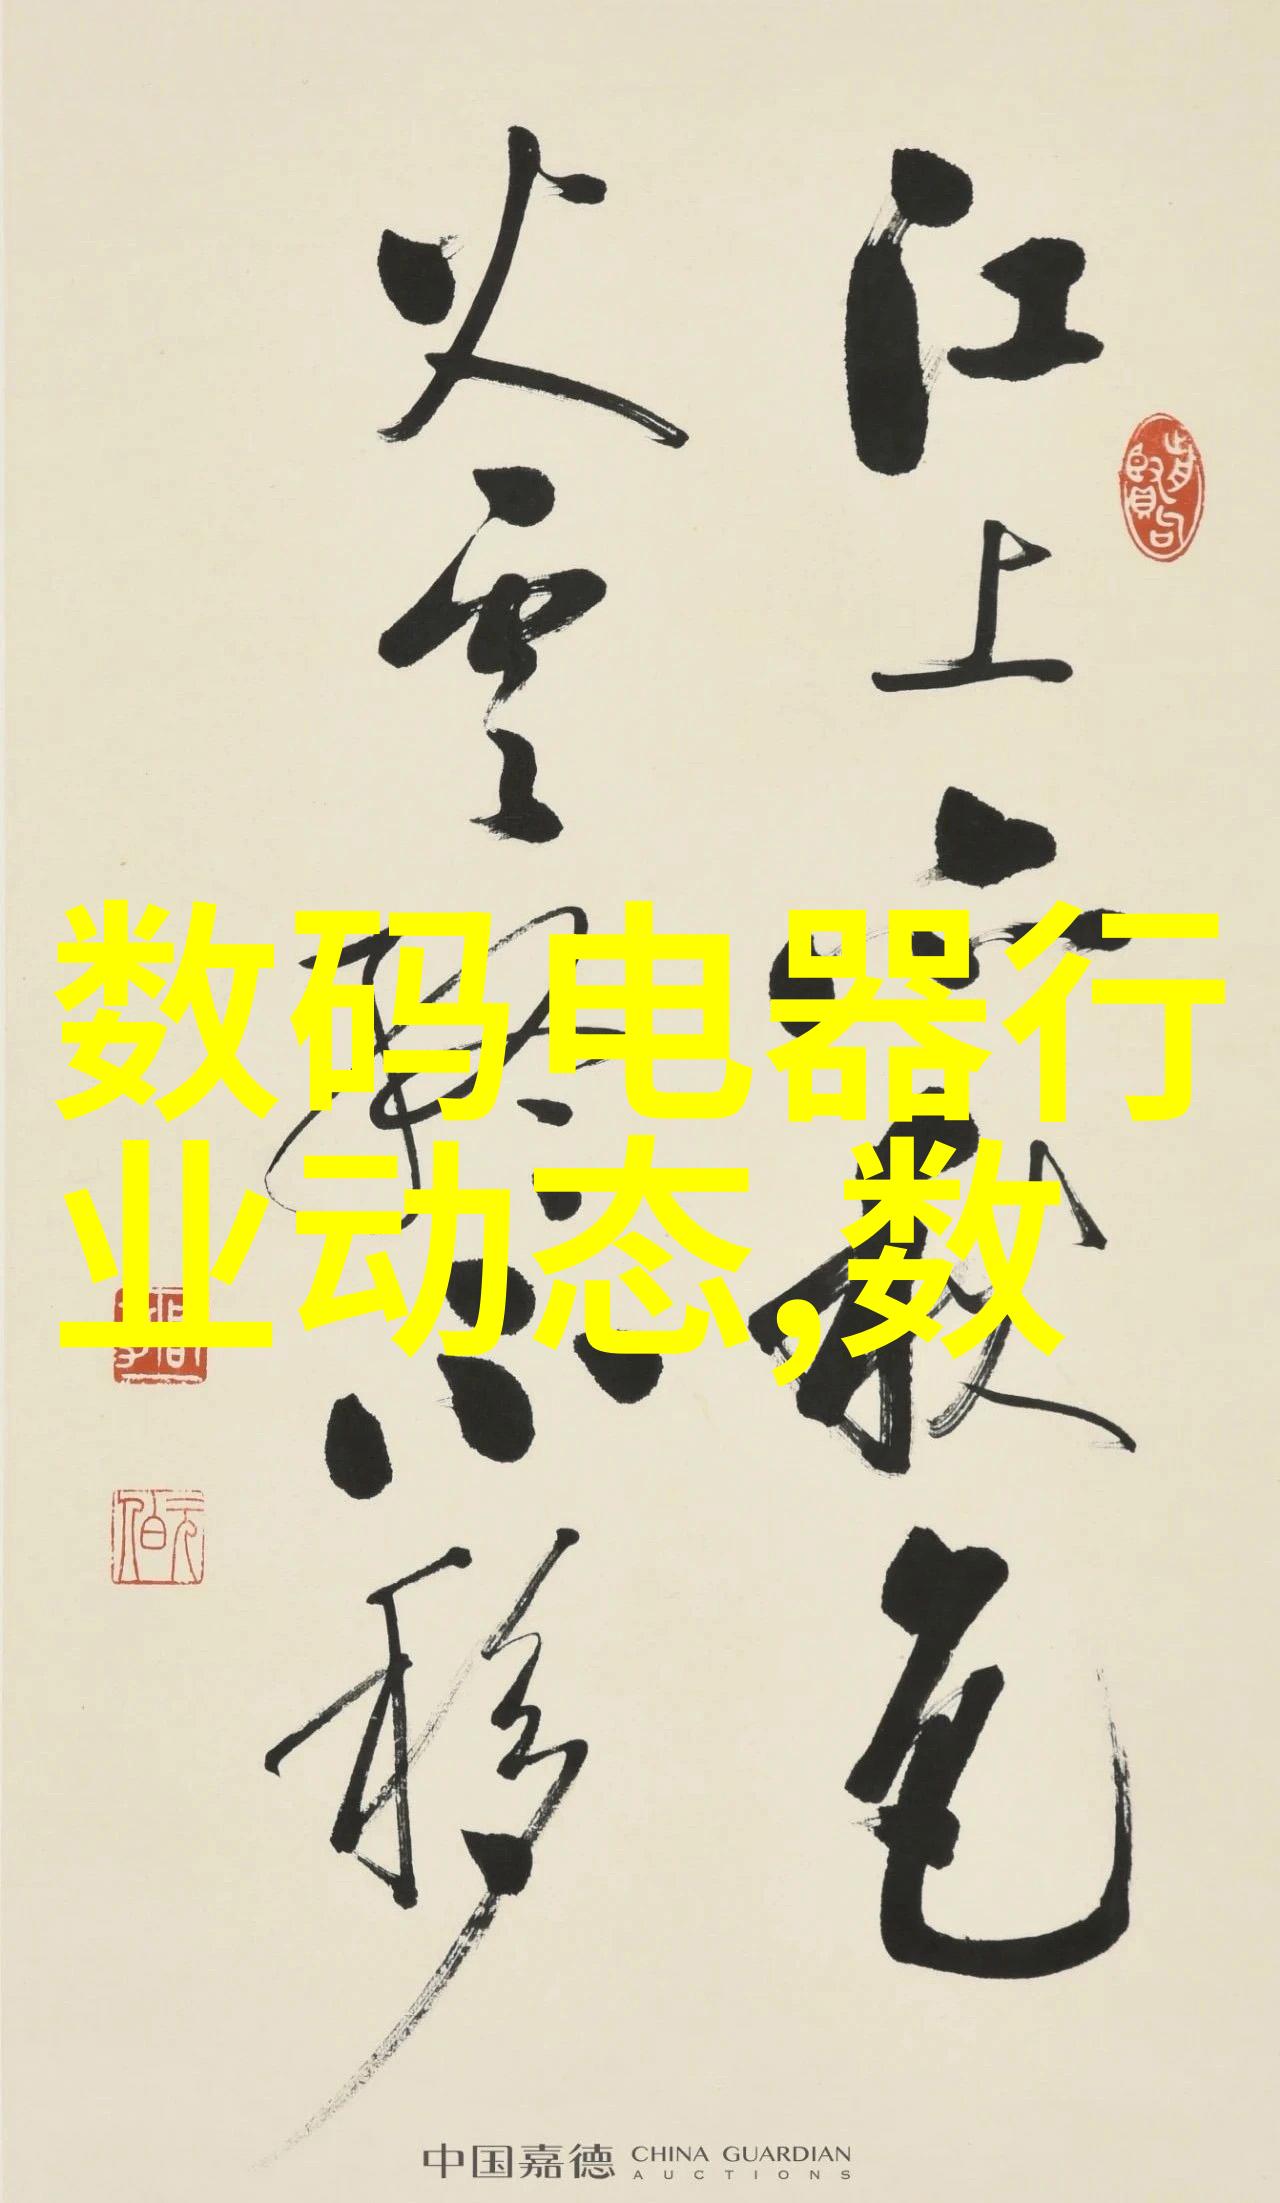 江上亦秋色
火雲終不移
数码电器行
业动态,数
中国嘉德 CHINA GUARDIAN
AUCTIONS